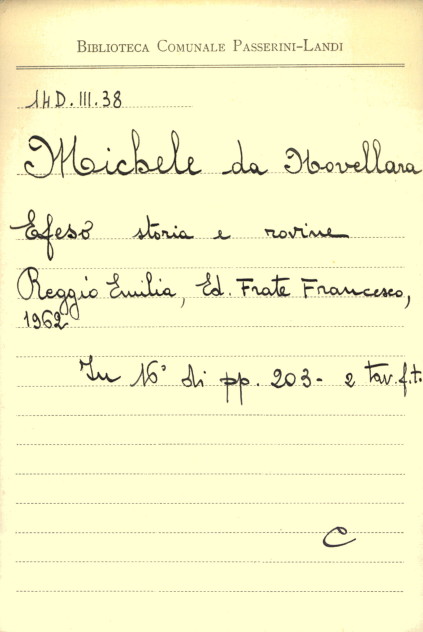 BIBLIOTECA COMUNALE PASSERINI-LANDI
14D.III.38
Michele da Novellara
Efeso storia e rovine
Reggio Emilia, Ed. Frate Francesco,
1962
In 16° di pp. 203 - 2 tav. f.t.
C